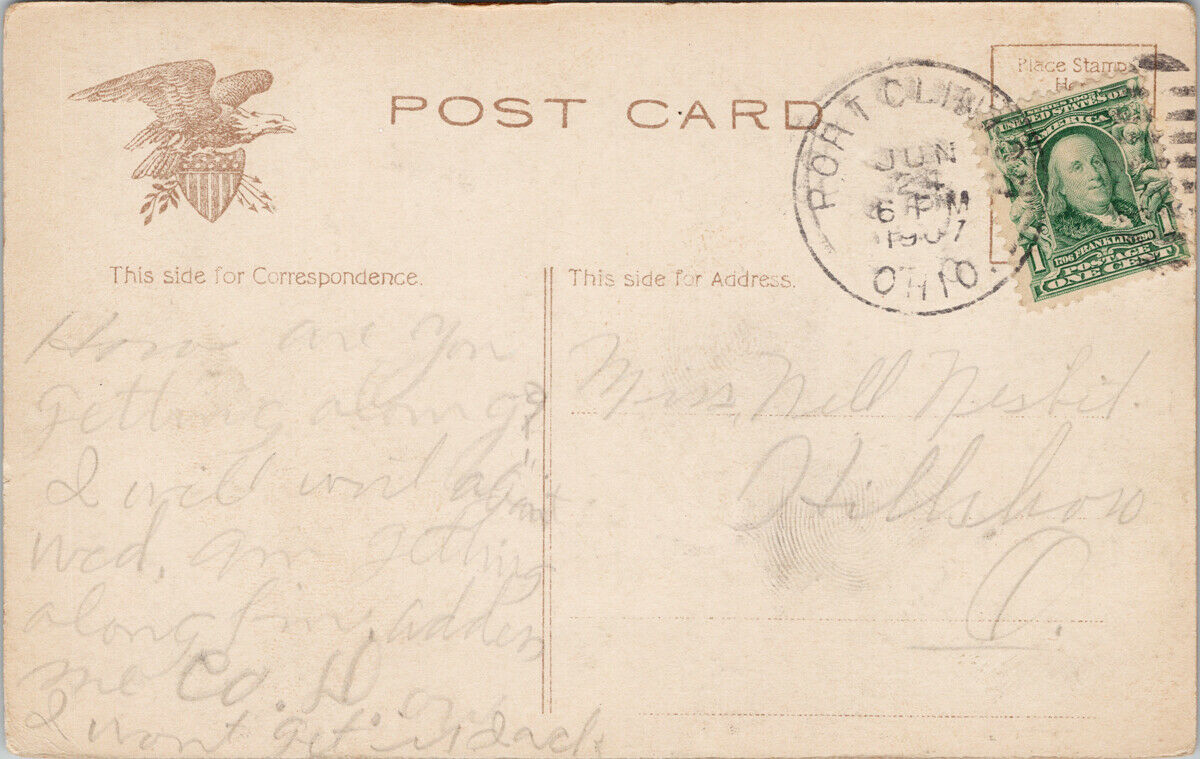 POST CARD
Place Stamp
PORT CLIN
JUN
24
6 PM
1907
OHIO.
SERIES 1902
UNITED STATES OF
AMERICA
1706 FRANKLIN 1790
1 POSTAGE 1
ONE CENT
This side for Correspondence.
This side for Address.
How are you
getting along?
I will writ again
Wed, am getting
along fin, address
me Co. D. or
I wont get it back
Miss, Nell Nesbit.
Hillsboro
O.